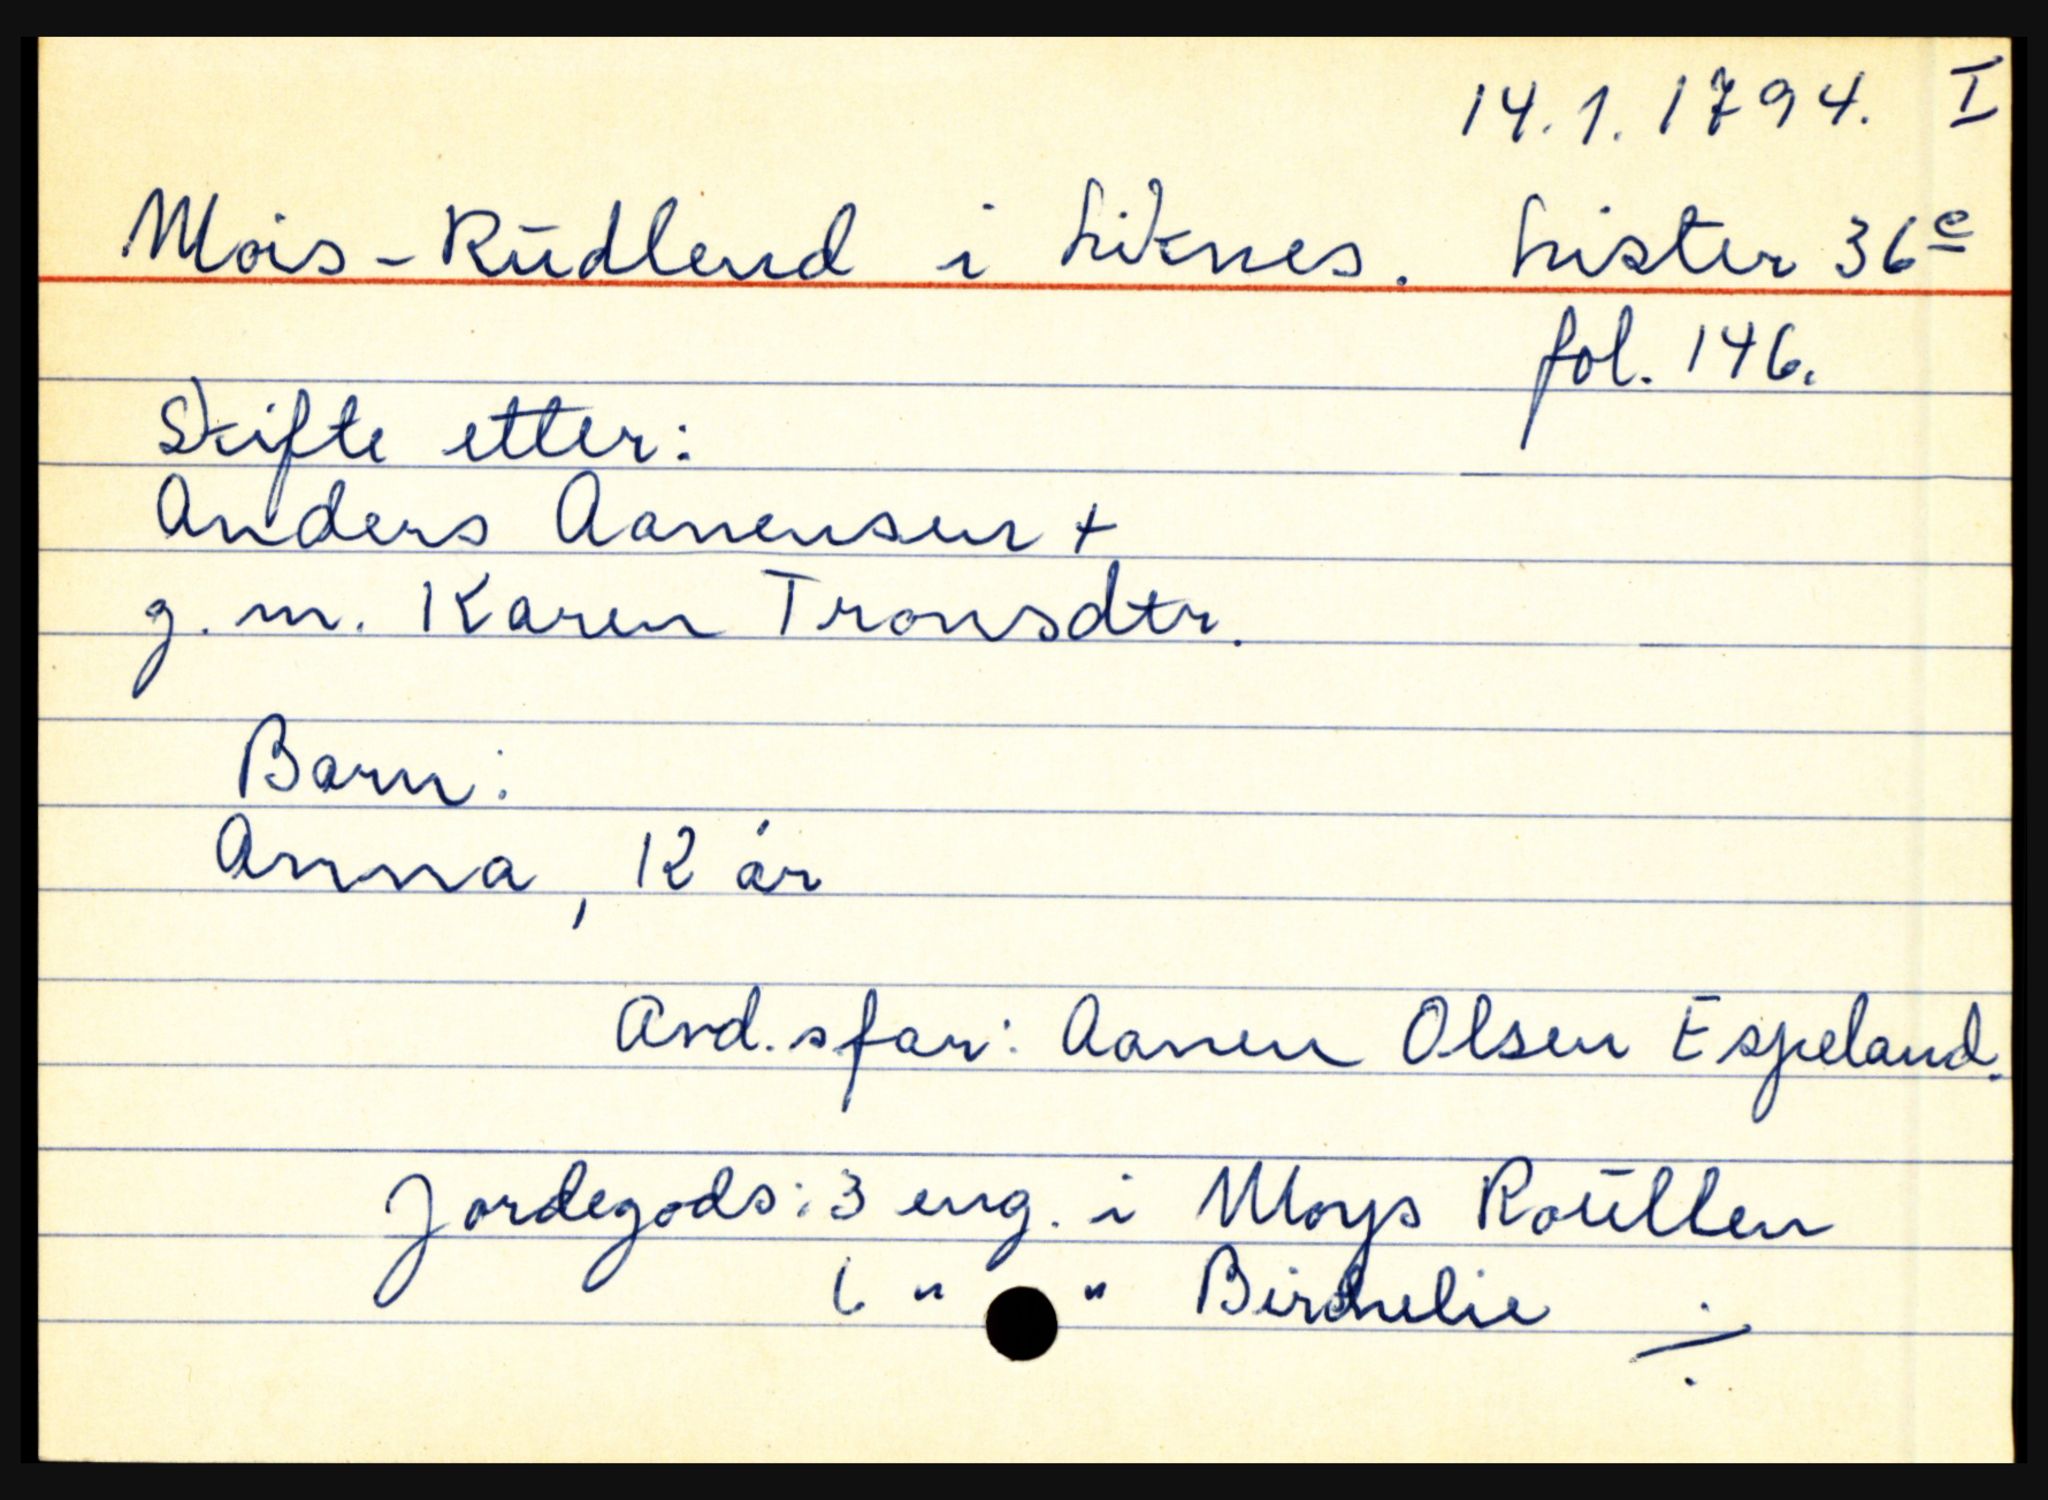 14.1.1794. I
Mois-Rudlend i Liknes. Lister 36e
fol. 146.
Skifte etter:
Anders Aanensen +
g. m. Karen Tronsdtr.
Barn:
Anna, 12 år
Avd.sfar: Aanen Olsen Espeland.
Jordegods: 3 eng. i Moys Roullen
6 " "